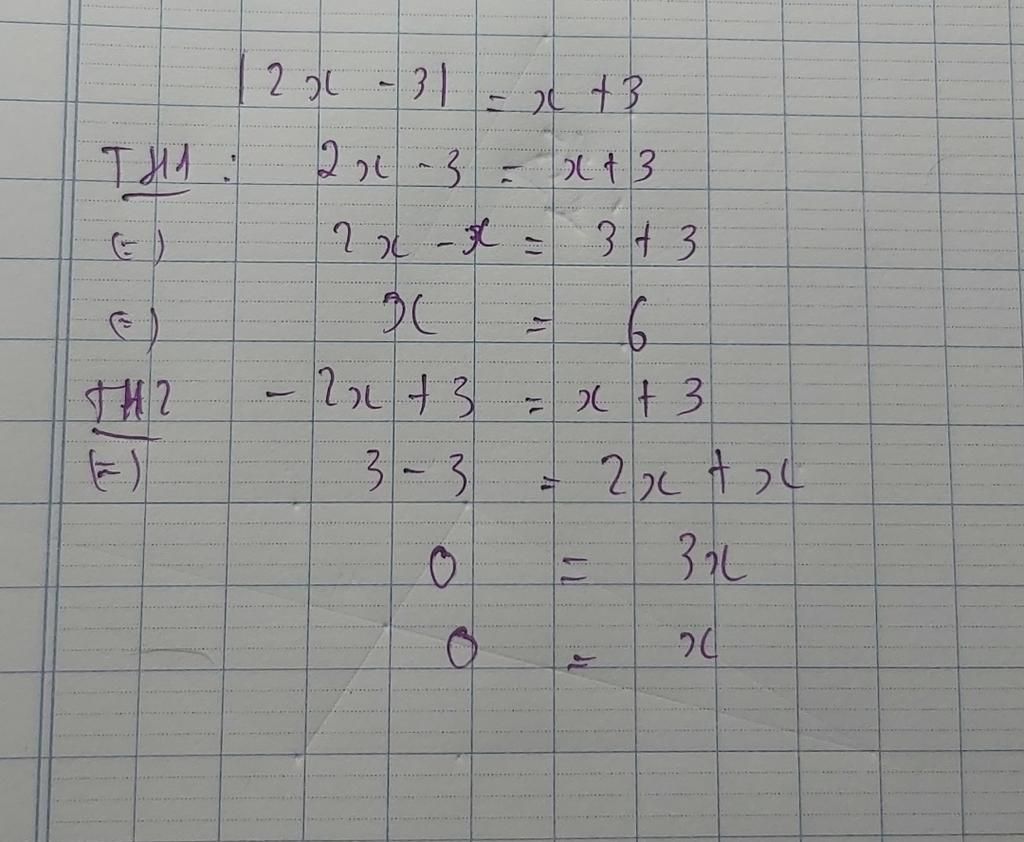 |2x - 3| = x + 3
TH1: 2x - 3 = x + 3
(=) 2x - x = 3 + 3
(=) x = 6
TH2 - 2x + 3 = x + 3
(=) 3 - 3 = 2x + x
0 = 3x
0 = x